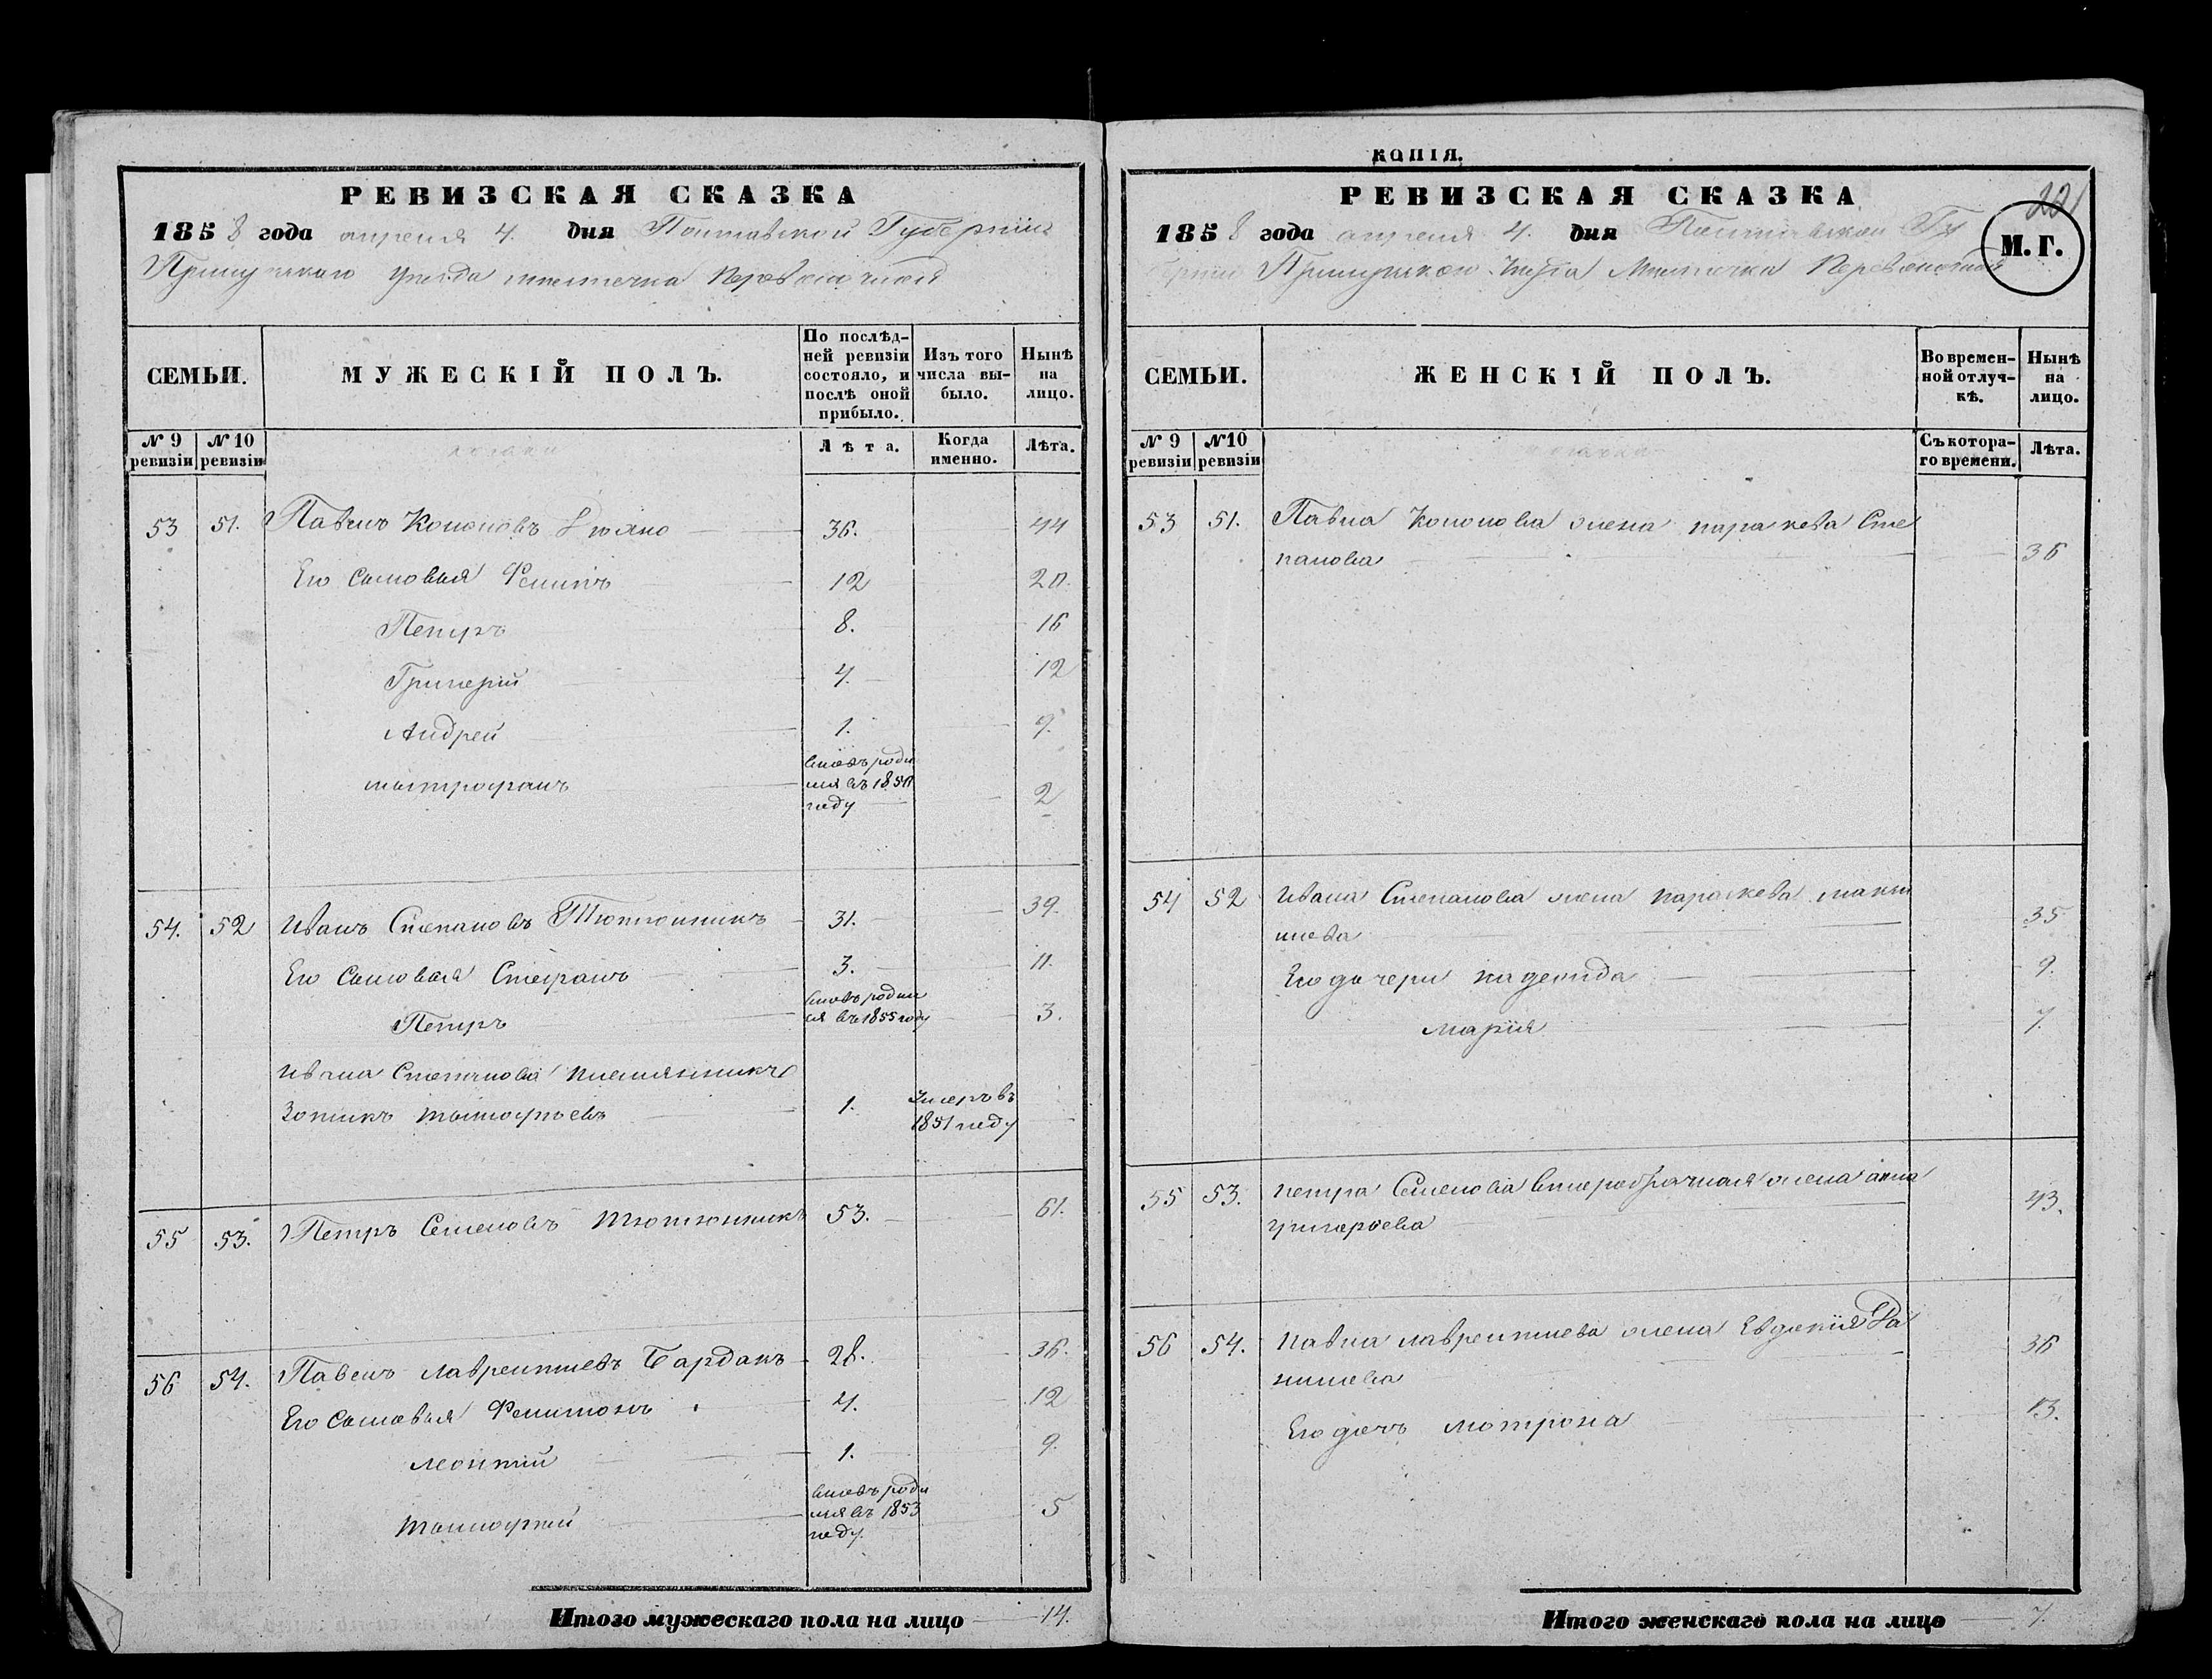 РЕВИЗСКАЯ СКАЗКА
1858 года апреля 4. дня Полтавской Губернии
Прилуцкаго уезда местечка Переволочной
СЕМЬИ.
МУЖЕСКІЙ ПОЛЪ.
По послѣд-
ней ревизіи
состояло, и
послѣ оной
прибыло.
Изъ того
числа вы-
было.
Нынѣ
на
лицо.
№ 9
ревизіи
№ 10
ревизіи
Лѣта.
Когда
именно.
Лѣта.
53 51. Павелъ Кононовъ 36. 44
Его сыновья Филипъ 12 20.
Петръ 8. 16
Григорій 4. 12
Андрей 1. 9.
митрофанъ вновь роди
лся въ 1856
году 2
54. 52 Иванъ Степановъ Тютюнникъ 31. 39.
Его сыновья Стефанъ 3. 11.
Петръ вновь родил
ся въ 1855 году 3.
Ивана Степанова племянникъ
Зотикъ тимофѣевъ 1. Умеръ въ
1851 году
55 53. Петръ Семеновъ тютюнникъ 53. 61.
56 54. Павелъ лаврентиевъ Бардакъ 28. 36.
Его сыновья Филимонъ 4. 12
леонтий 1. 9.
тимофий вновь роди
лся въ 1853
году. 5
Итого мужескаго пола на лицо 14.
КОПІЯ.
РЕВИЗСКАЯ СКАЗКА
221
М. Г.
1858 года апреля 4. дня Полтавской Гу
бернии Прилуцкаго уезда Местечка Переволочной
СЕМЬИ.
ЖЕНСКІЙ ПОЛЪ.
Во времен-
ной отлуч-
кѣ.
Нынѣ
на
лицо.
№ 9
ревизіи
№10
ревизіи
Съ котора-
го времени.
Лѣта.
53 51. Павла Кононова жена параскева Сте
панова 36
54 52 Ивана Степанова жена параскева маки
35
Его дочери надежда 9.
марія 7.
55 53. петра Семенова второбрачная жена анна
григорьева 43.
56 54. павла лаврентиева жена Евдокия Да
нилова 36
Его дочь мотрона 13.
Итого женскаго пола на лицо 7.